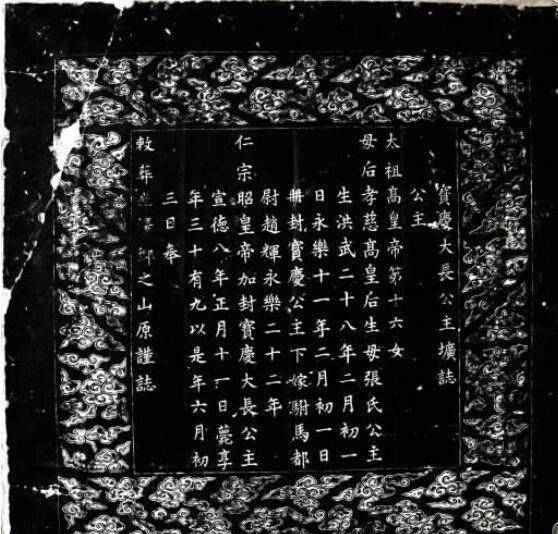 寶慶大長公主壙誌
公主
太祖高皇帝第十六女
母后孝慈高皇后生母張氏公主
生洪武二十八年二月初一
日永樂十一年二月初一日
冊封寶慶公主下嫁駙馬都
尉趙輝永樂二十二年
仁宗昭皇帝加封寶慶大長公主
宣德八年正月十一日薨享
年三十有九以是年六月初
三日奉
敕葬之山原謹誌